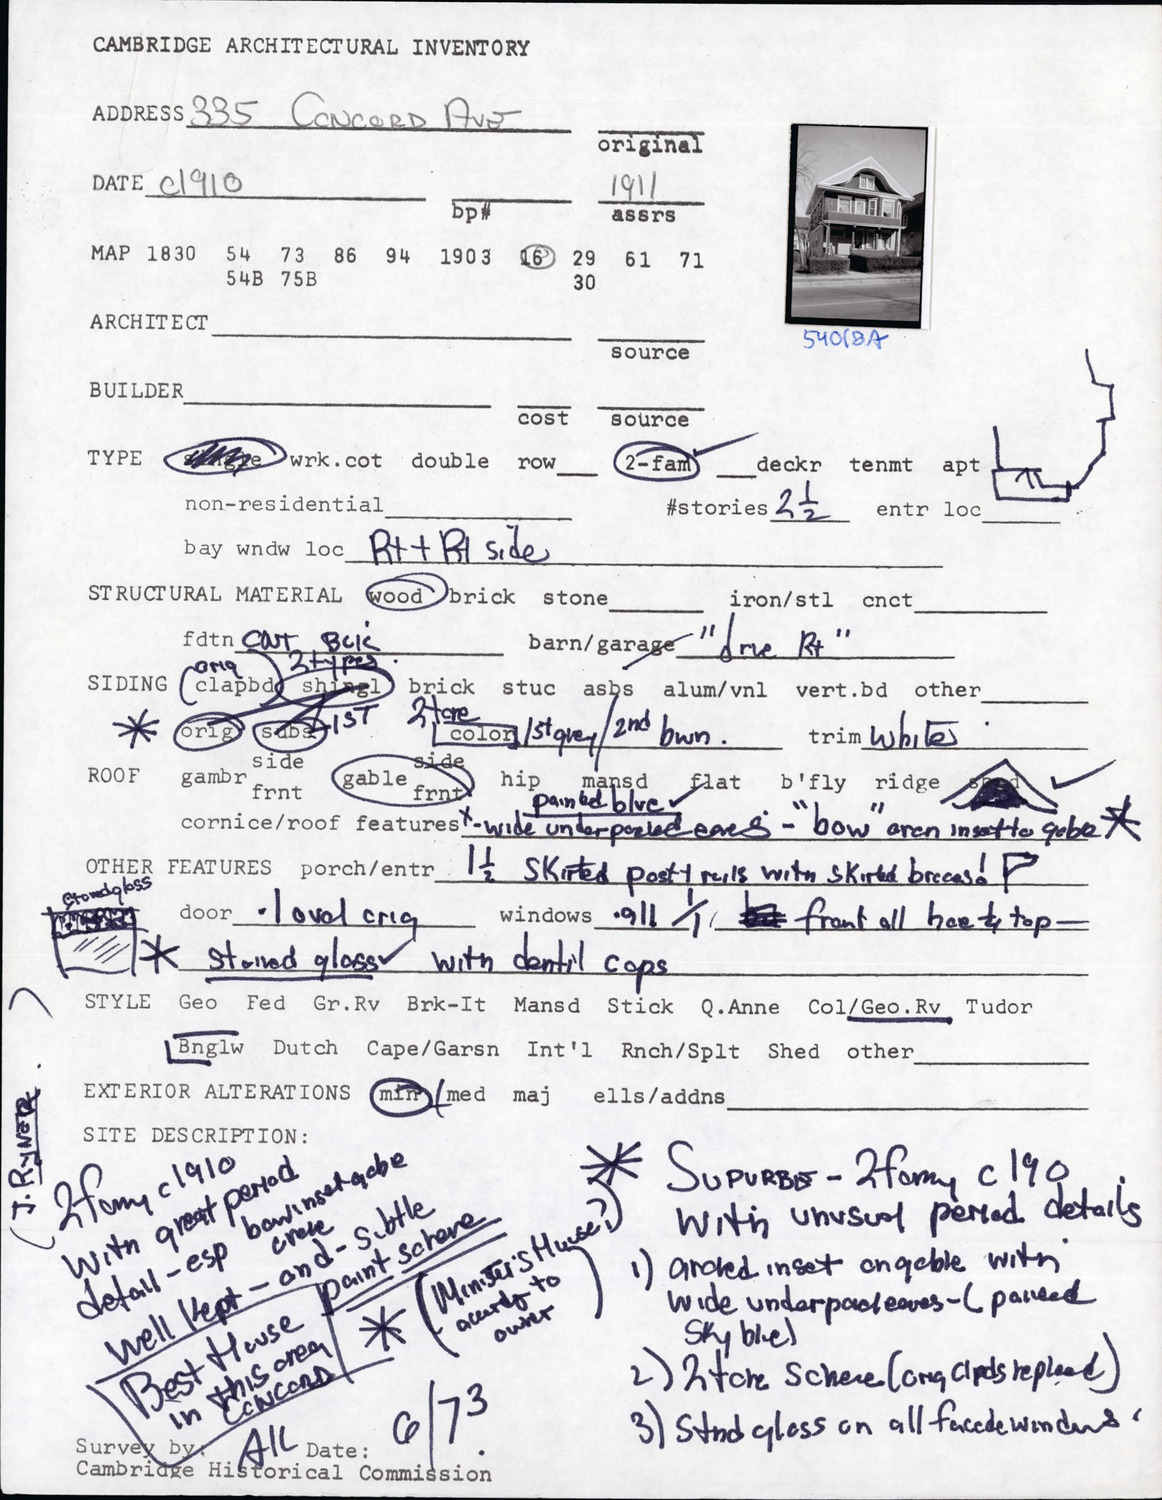 CAMBRIDGE ARCHITECTURAL INVENTORY
ADDRESS 335 CONCORD AVE
original
DATE c1910 1911
bp# assrs
MAP 1830 54 73 86 94 1903 16 29 61 71
54B 75B 30
540(8A
ARCHITECT
source
BUILDER
cost source
TYPE wrk.cot double row 2-fam deckr tenmt apt
non-residential #stories 2 1/2 entr loc
bay wndw loc Rt + Rt side
STRUCTURAL MATERIAL wood brick stone iron/stl cnct
fdtn CNT BLK barn/garage "drve Rt"
orig 2 types.
SIDING clapbd shingl brick stuc asbs alum/vnl vert.bd other
* orig subs 1ST 2 tone color /1st grey/2nd bwn. trim White
ROOF gambr side frnt gable side frnt hip mansd flat b'fly ridge shed
painted blue
cornice/roof features *-wide eaves - "bow" inset to gable *
OTHER FEATURES porch/entr 1 1/2 Skirted post & rails with skirted
Staindglass
door .1 oval orig windows .all 1/1, front all have top
* stained glass with dentil caps
STYLE Geo Fed Gr.Rv Brk-It Mansd Stick Q.Anne Col/Geo.Rv Tudor
Bnglw Dutch Cape/Garsn Int'l Rnch/Splt Shed other
EXTERIOR ALTERATIONS min med maj ells/addns
SITE DESCRIPTION:
2 famy c1910
with great period
detail - esp bow inset gable
well kept - and - subtle
paint scheme
Best House
in this area
CONCORD
* (Minister's House?)
according to
owner
* SUPURBE - 2 famy c 190
with unusual period details
1) arched inset on gable with
wide eaves - (painted
sky blue)
2) 2 tone Scheme (orig Clpds replaced)
3) Stnd glass on all facade windows
Survey by: AK Date: 6/73
Cambridge Historical Commission